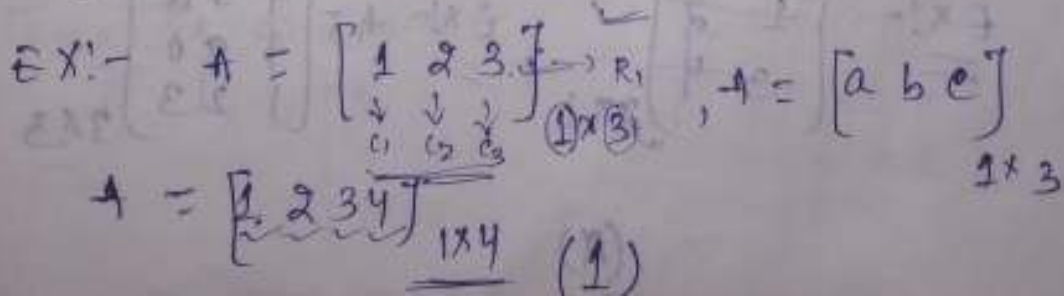 EX:- A = [1 2 3] → R₁ , A = [a b c]
↓ ↓ ↓ 1×3
C₁ C₂ C₃ 1×3
A = [1 2 3 4] 1×4 (1)